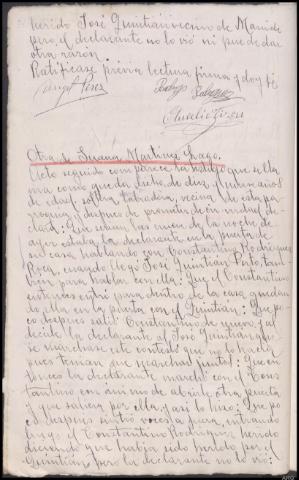 herido José Quintian vecino de Manide
pero el declarante no lo vió ni puede dar
otra razón.
Ratificase previa lectura firma y doy fé
Otra de Susana Martinez Lago.
Acto seguido comparece la testigo que se lla
ma como queda dicho, de diez y nueve años
de edad, soltera, labradora, vecina de esta pa-
rroquia y despues de prometer decir verdad
declaró: Que a las nueve de la noche de
ayer estaba la declarante en la puerta de
su casa hablando con Constantino Rodriguez
Roca, cuando llegó José Quintian Pinto tam-
bien para hablar con ella: Que el Constantino
entonces entró para dentro de la casa quedan
do ella en la puerta con el Quintian: Que po-
co despues salió Constantino de nuevo y al
decirle la declarante al José Quintian que
se marchase este contestó que no lo hacia
pues tenian que marchar juntos: Que en
tonces la declarante marchó con el Cons
tantino con animo de abrirle otra puerta
y que saliera por ella, y asi lo hizo: Que po
co despues sintió voces a fuera, entrando
luego el Constantino Rodriguez herido
diciendo que habia sido herido por el
Quintián pero la declarante no lo vió: